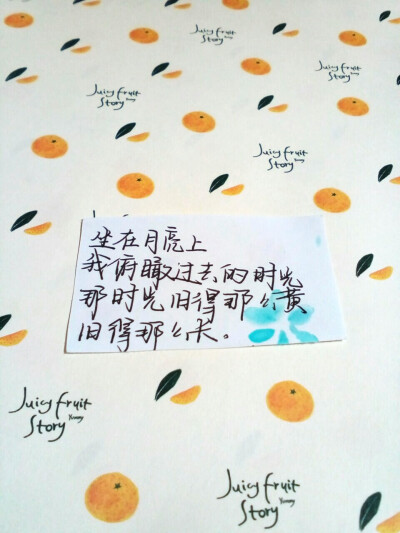 Juicy fruit
Story
Juicy fruit
Story
Juicy fruit
Story
Juicy fruit
Story
Juicy fruit
Story
Juicy fruit
Story
坐在月亮上
我俯瞰过去的时光
那时光旧得那么黄
旧得那么长。
Juicy fruit
Story Yummy
Juicy fruit
Story Yummy